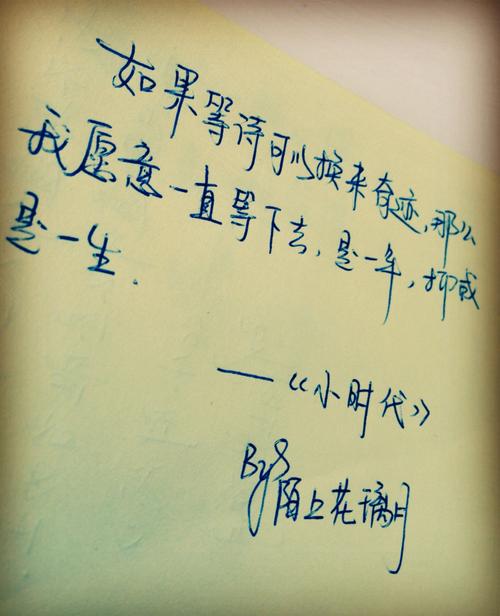 如果等待可以换来奇迹,那么
我愿意一直等下去,是一年,抑或
是一生.
—《小时代》
By
陌上花璃月